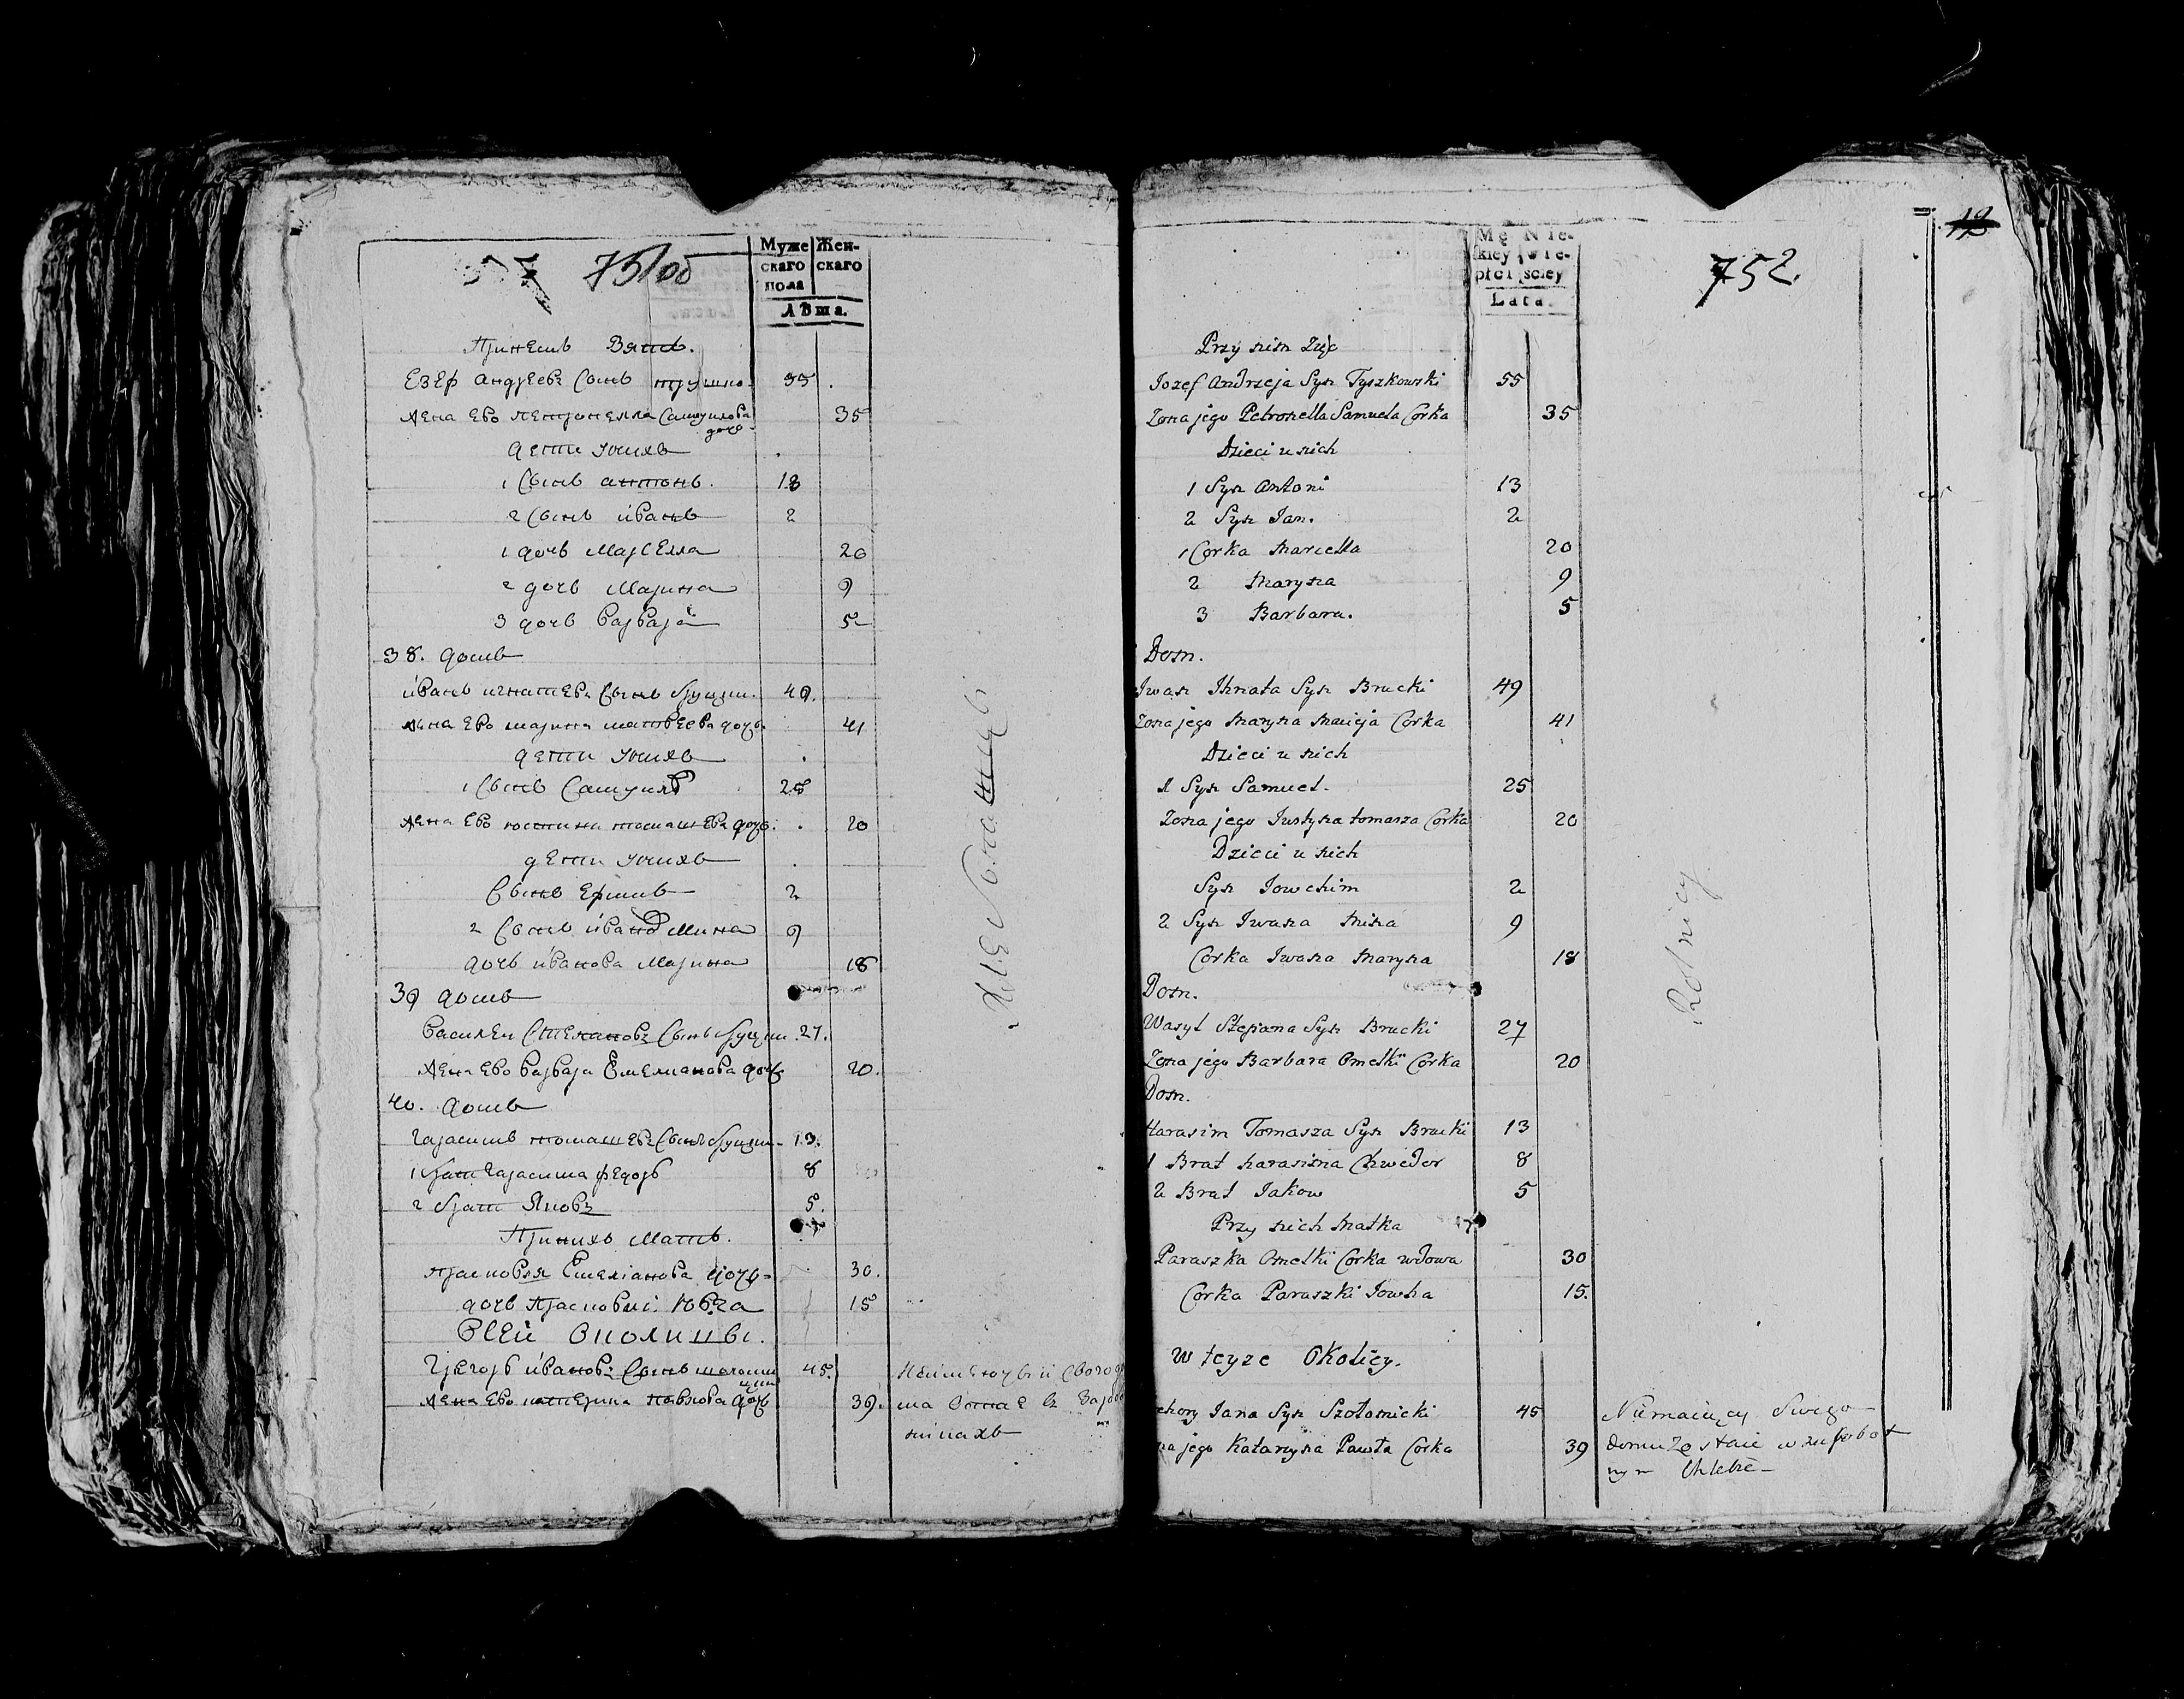 751об
Муже Жен-
скаго скаго
пола
Лѣта.
При немъ Зять.
Езеф андреевъ Сынъ тишко- 55
Жена Ево петронелла Самуилова 35
дочь
дети уныхъ
1 Сынъ антонъ. 13
2 Сынъ иванъ 2
1 дочь Марселла 20
2 дочь Марина 9
3 дочь варвара 5
38. домъ
иванъ игнатевъ Сынъ бруцки. 49.
Жена Ево марина матвеева дочь 41
дети уныхъ
1 Сынъ Самуилъ 25
Жена Ево юстина томашева дочь. 20
дети уныхъ
Сынъ Ефимъ 2
2 Сынъ ивана Мина 9
дочь иванова Марина 18
39 домъ
василеи Степановъ Сынъ бруцки. 27.
Жена Ево варвара Емелианова дочь 20.
40. домъ
гарасимъ томашевъ Сынъ бруцки- 13.
1 брат гарасима федоръ 8
2 брат Яковъ 5.
При ихъ Мать.
прасковья Емеліанова дочь- 30.
дочь прасковьи Ювга 15
Всей Околицы.
Грегоръ ивановъ Сынъ шоломи 45. Неимеючый Своего
цки
Жена Ево катерина павлова дочь 39. ма
Хлебопашцы
12
Mę Nie-
skiey wie-
płci sciey
Lata.
752.
Przy nim Zięc
Jozef Andrzeja Syn Tyszkowski 55
Zona jego Petronella Samuela Corka 35
Dzieci u nich
1 Syn Antoni 13
2 Syn Jan. 2
1 Corka Marcella 20
2 Maryna 9
3 Barbara. 5
Dom.
Iwan Ihnata Syn Brucki 49
Zona jego Maryna Macieja Corka 41
Dzieci u nich
1 Syn Samuel. 25
Zona jego Justyna tomasza Corka 20
Dzieci u nich
Syn Jowchim 2
2 Syn Iwana Mina 9
Corka Iwana Maryna 18
Dom.
Wasyl Stepana Syn Brucki 27
Zona jego Barbara Omelki Corka 20
Dom.
Harasim Tomasza Syn Brucki 13
1 Brat harasima Chwedor 8
2 Brat Jakow 5
Przy nich Matka
Paraszka Omelki Corka wdowa 30
Corka Paraszki Jowha 15.
W teyze Okolicy.
Jana Syn Szołomicki 45 Niemaiący Swego
jego Katarzyna Pawła Corka 39 domu Zostaie w
nym Chlebie
Rolnicy